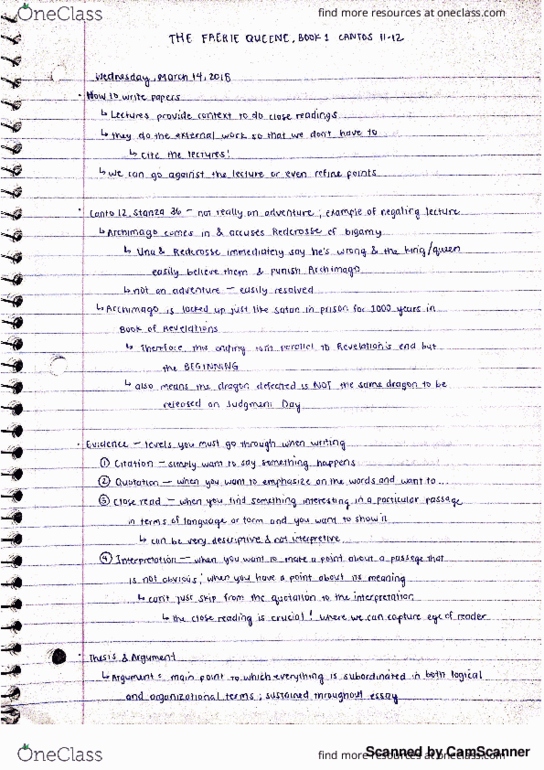 OneClass
find more resources at oneclass.com
THE FAERIE QUEENE, BOOK 1 CANTOS 11-12
Wednesday, March 14, 2018
· How to write papers
↳ Lectures provide context to do close readings
↳ they do the external work so that we don't have to
↳ cite the lectures!
↳ we can go against the lecture or even refine points
· Canto 12, Stanza 36 - not really an adventure; example of negating lecture
↳ Archimago comes in & accuses Redcrosse of bigamy
↳ Una & Redcrosse immediately say he's wrong & the king/queen
easily believe them & punish Archimago
↳ not an adventure - easily resolved
↳ Archimago is locked up just like Satan in prison for 1000 years in
Book of Revelations
↳ Therefore this ending isn't parallel to Revelation's end but
the BEGINNING
↳ also means the dragon defeated is NOT the same dragon to be
released on Judgment Day
· Evidence - levels you must go through when writing
① Citation - simply want to say something happens
② Quotation - when you want to emphasize on the words and want to...
③ Close read - when you find something interesting in a particular passage
in terms of language or form and you want to show it
↳ can be very descriptive & not interpretive
④ Interpretation - when you want to make a point about a passage that
is not obvious; when you have a point about its meaning
↳ can't just skip from the quotation to the interpretation
↳ the close reading is crucial! where we can capture eye of reader
· Thesis & Argument
↳ Argument: main point to which everything is subordinated in both logical
and organizational terms; sustained throughout essay
OneClass
find more resources at oneclass.com
Scanned by CamScanner